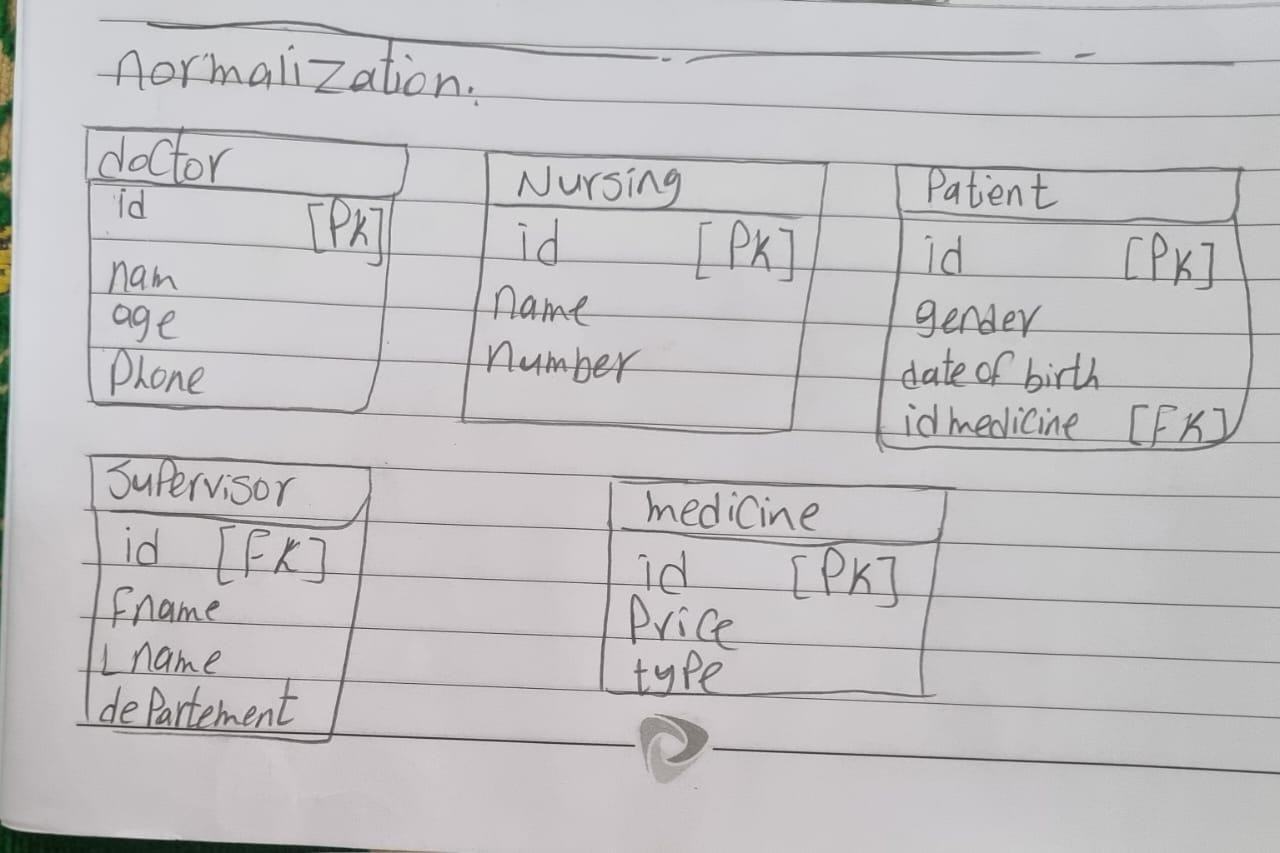 normalization.
doctor
id [PK]
nam
age
Phone
Nursing
id [PK]
name
number
Patient
id [PK]
gender
date of birth
id medicine [FK]
Supervisor
id [FK]
Fname
Lname
departement
medicine
id [PK]
Price
type